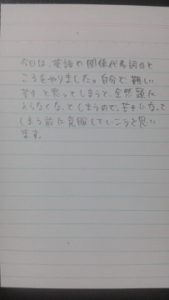 今日は、英語の関係代名詞のと
ころをやりました。自分で難しい、
苦手と思ってしまうと、全然頭に
入らなくなってしまうので、苦手になって
しまう前に克服していこうと思い
ます。